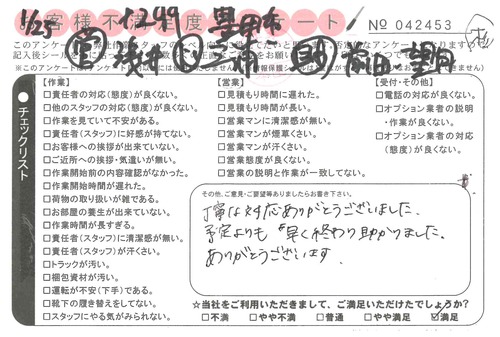 1/25 1249 豊田市
お客様不満足度アンケート No 042453
営 横井 三浦 望月
【作業】
□責任者の対応(態度)が良くない。
□他のスタッフの対応(態度)が良くない。
□作業を見ていて不安がある。
□責任者(スタッフ)に好感が持てない。
□お客様への挨拶が出来ていない。
□ご近所への挨拶・気遣いが無い。
□作業開始前の内容確認がなかった。
□作業開始時間が遅れた。
□荷物の取り扱いが雑である。
□お部屋の養生が出来ていない。
□作業時間が長すぎる。
□責任者(スタッフ)に清潔感が無い。
□責任者(スタッフ)が汗くさい。
□トラックが汚い。
□梱包資材が汚い。
□運転が不安(下手)である。
□靴下の履き替えをしてない。
□スタッフにやる気がみられない。
【営業】
□見積もり時間に遅れた。
□見積もり時間が長い。
□営業マンに清潔感が無い。
□営業マンが煙草くさい。
□営業マンが汗くさい。
□営業態度が良くない。
□営業の説明と作業が一致してない。
【受付・その他】
□電話の対応が良くない。
□オプション業者の説明
・作業が良くない。
□オプション業者の対応
(態度)が良くない。
●チェックリスト
その他、ご意見・ご要望等ありましたらお書き下さい。
丁寧な対応ありがとうございました。
予定よりも早く終わり助かりました。
ありがとうございます
☆当社をご利用いただきまして、ご満足いただけたでしょうか?
□不満 □やや不満 □普通 □やや満足 ☑満足